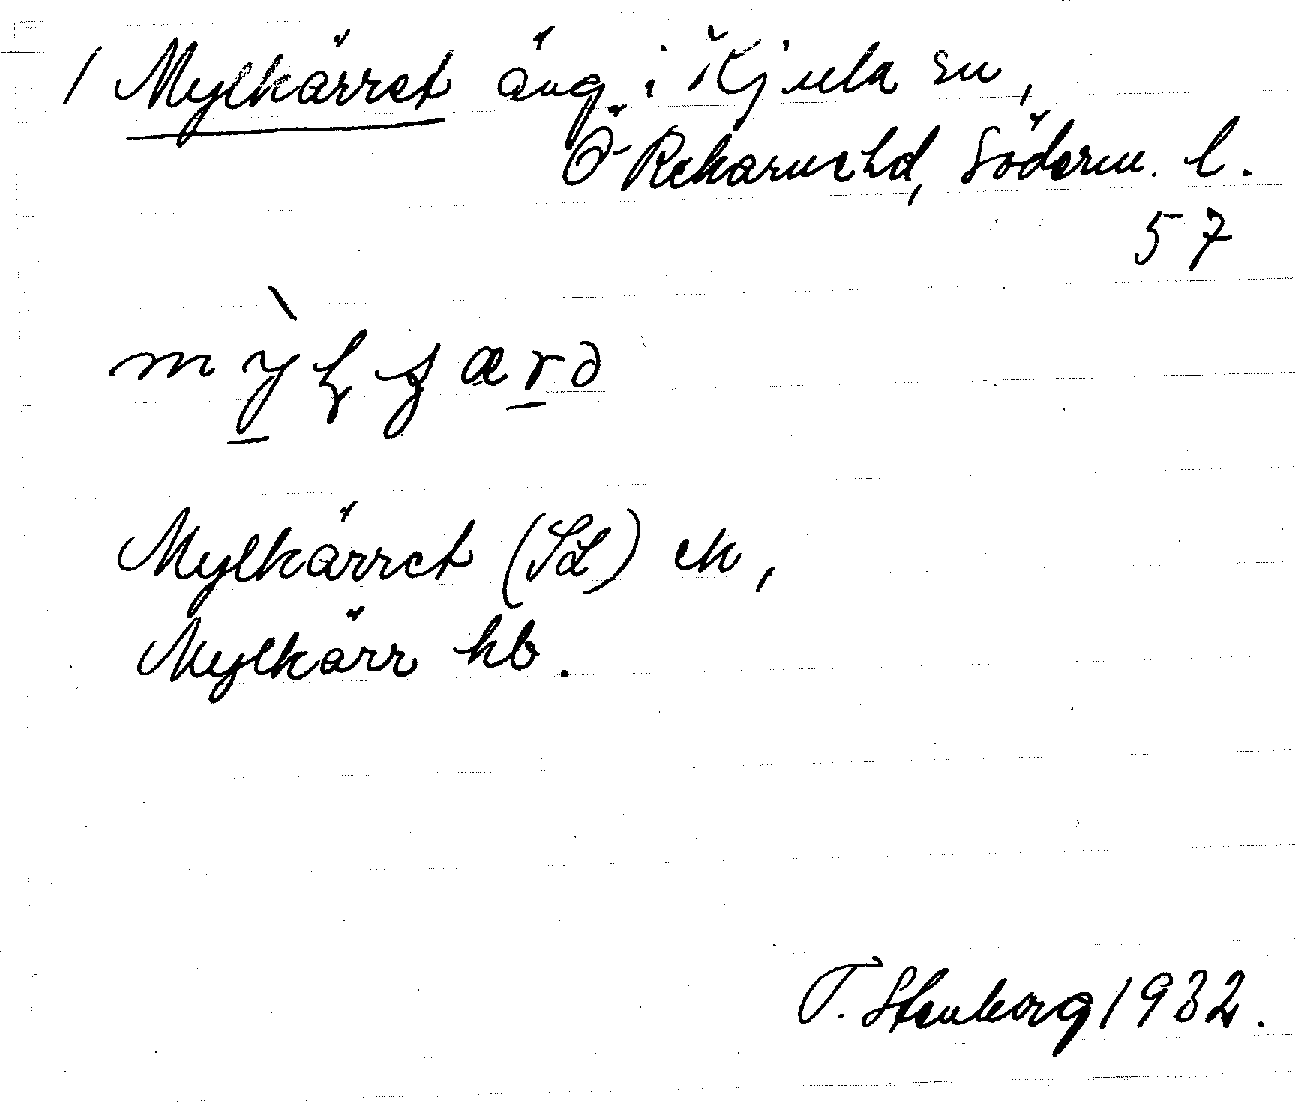 1 Mylkärret äng i Kjula sn,
Ö Rekarne hd, Söderm. l.
57
Mylkärret (Sd) ek,
Mylkärr hb.
T. Stenborg 1932.